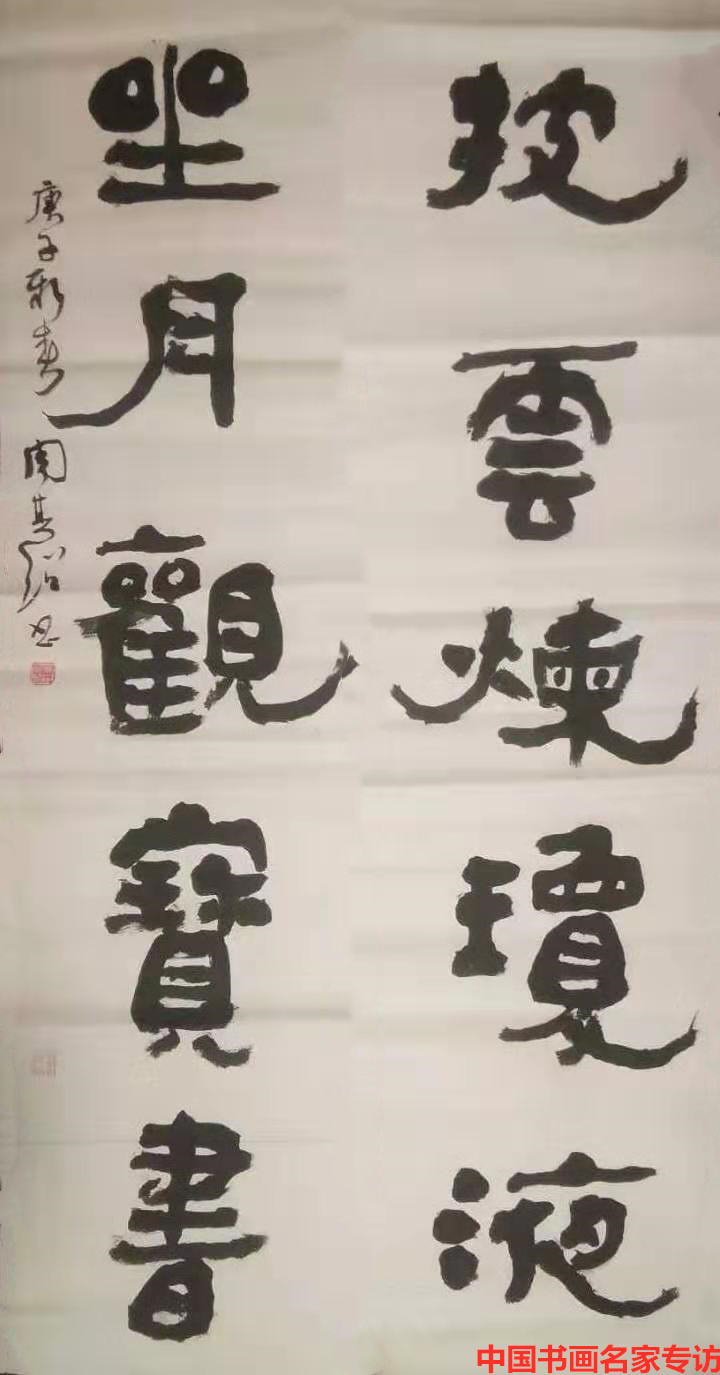 披雲煉瓊液
坐月觀寶書
庚子新春 周其 书
中国书画名家专访